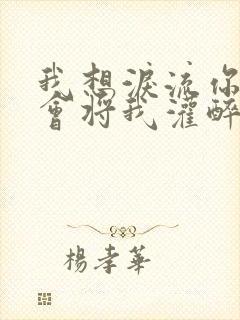 我想淚流你
會將我灌醉
楊孝華